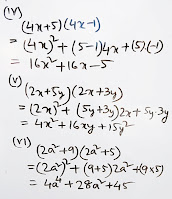 (iv)
(4x+5)(4x-1)
= (4x)² + (5-1)4x + (5)(-1)
= 16x² + 16x - 5
(v)
(2x+5y)(2x+3y)
= (2x)² + (5y+3y)2x + 5y·3y
= 4x² + 16xy + 15y²
(vi)
(2a²+9)(2a²+5)
= (2a²)² + (9+5)2a² + (9×5)
= 4a⁴ + 28a² + 45